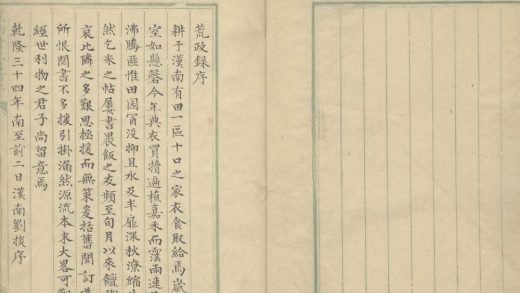 荒政録序
耕于漢南有田一區十口之家衣食取給焉歲
室如懸磬今年典衣買犢適植嘉禾而霪雨連
沸騰匪惟田園胥没抑且水及半扉深秋潦縮
然乞米之帖屢書畏飯之友頻至旬月以來饘
哀比隣之多艱思拯援而無策爰括舊聞訂
所恨閱書不多援引掛漏然源流本末大畧可
經世利物之君子尚留意焉
乾隆三十四年南至前二日漢南劉掞序